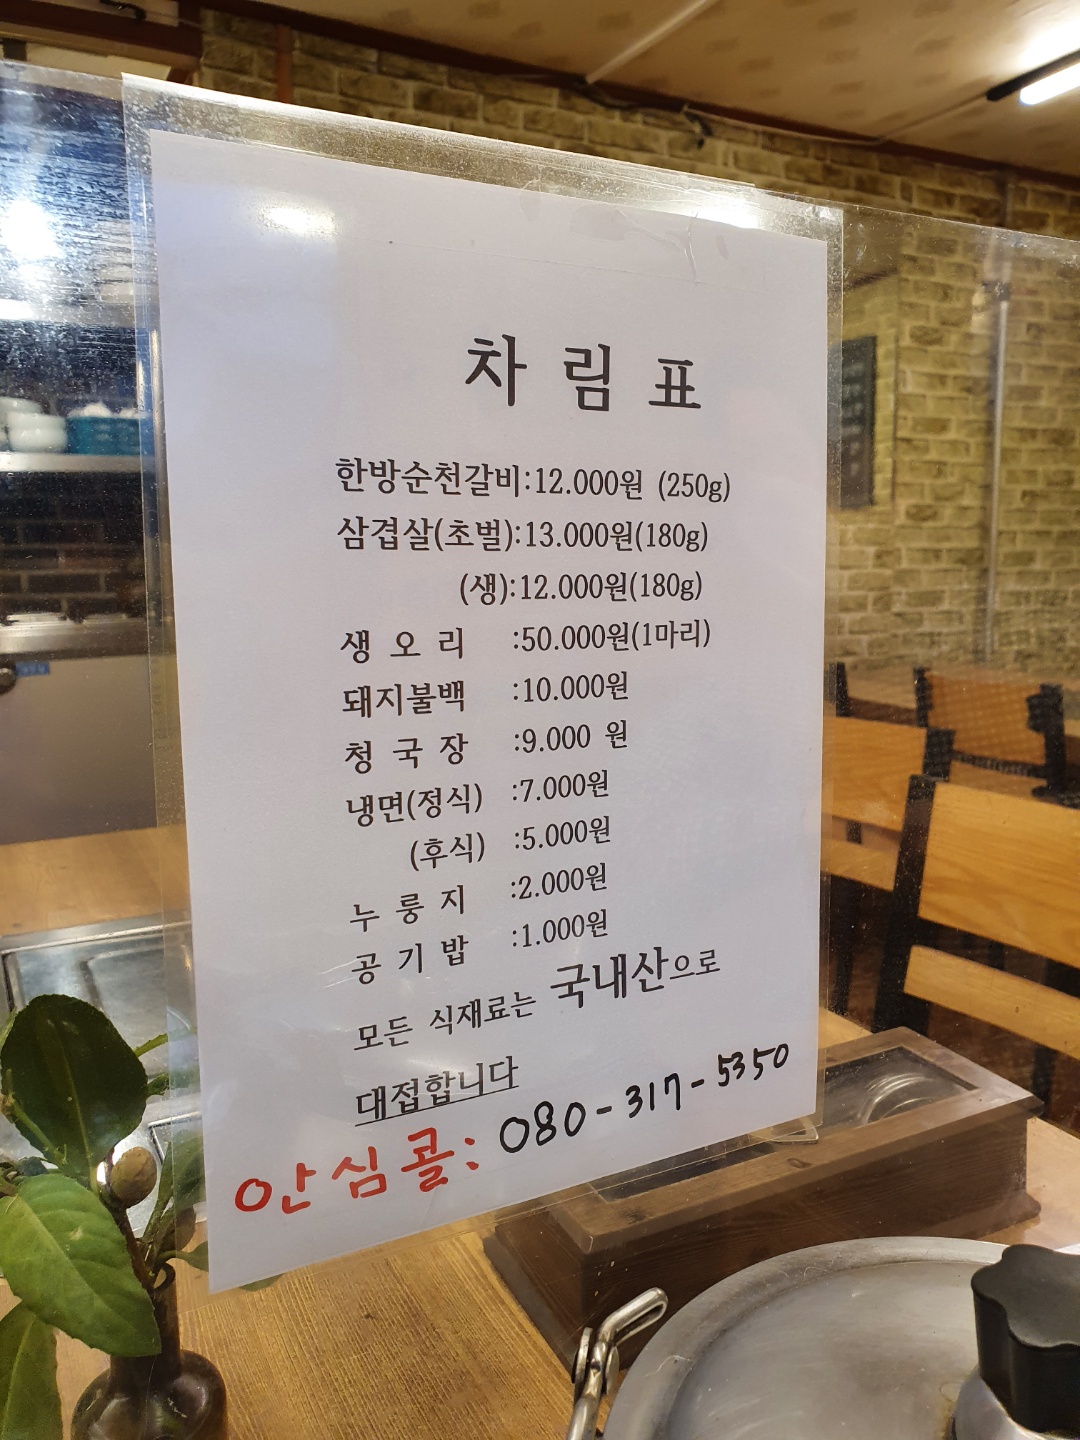 차 림 표
한방순천갈비:12.000원 (250g)
삼겹살(초벌):13.000원(180g)
(생):12.000원(180g)
생 오 리 :50.000원(1마리)
돼지불백 :10.000원
청 국 장 :9.000 원
냉면(정식) :7.000원
(후식) :5.000원
누 룽 지 :2.000원
공 기 밥 :1.000원
모든 식재료는 국내산으로
대접합니다
안심콜: 080-317-5350